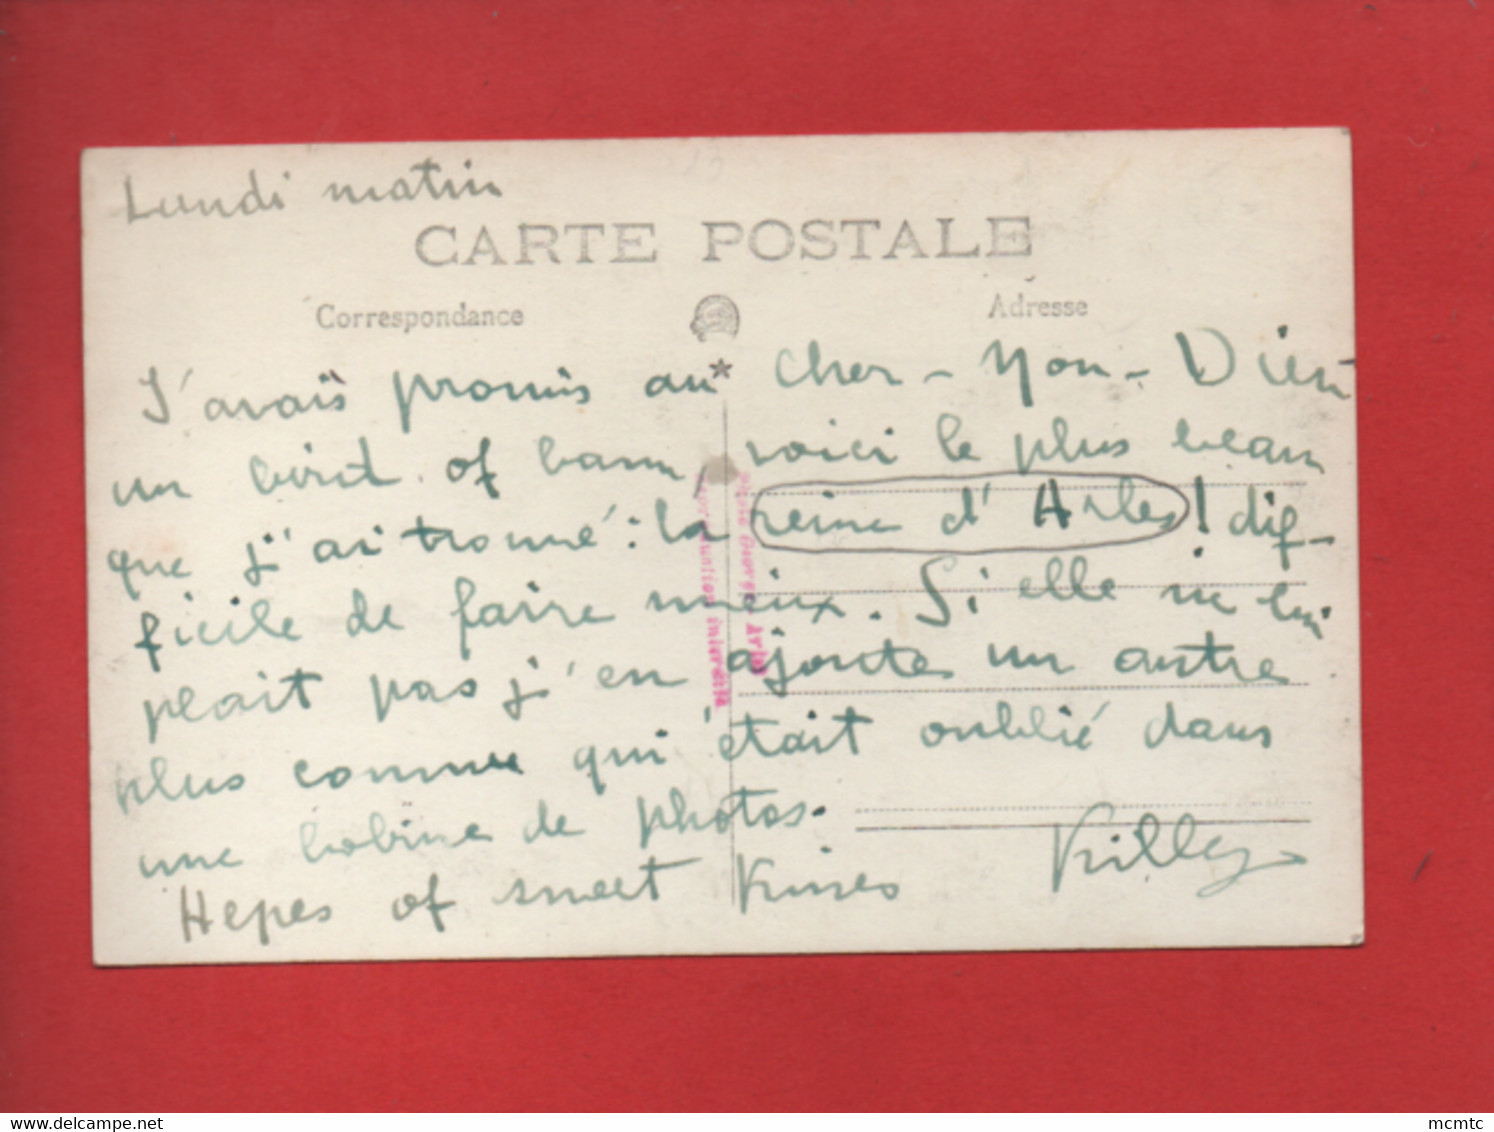 Lundi matin
CARTE POSTALE
Correspondance
Adresse
J'avais promis au cher-Mon-Dieu
un bird of , voici le plus beau
que j'ai trouvé : la reine d'Arles ! dif-
ficile de faire mieux. Si elle ne lui
plait pas j'en ajoute un autre
plus connu qui était oublié dans
une bobine de photos.
of sweet Kisses
Photo George Arles
reproduction interdite
www.delcampe.net
mcmtc